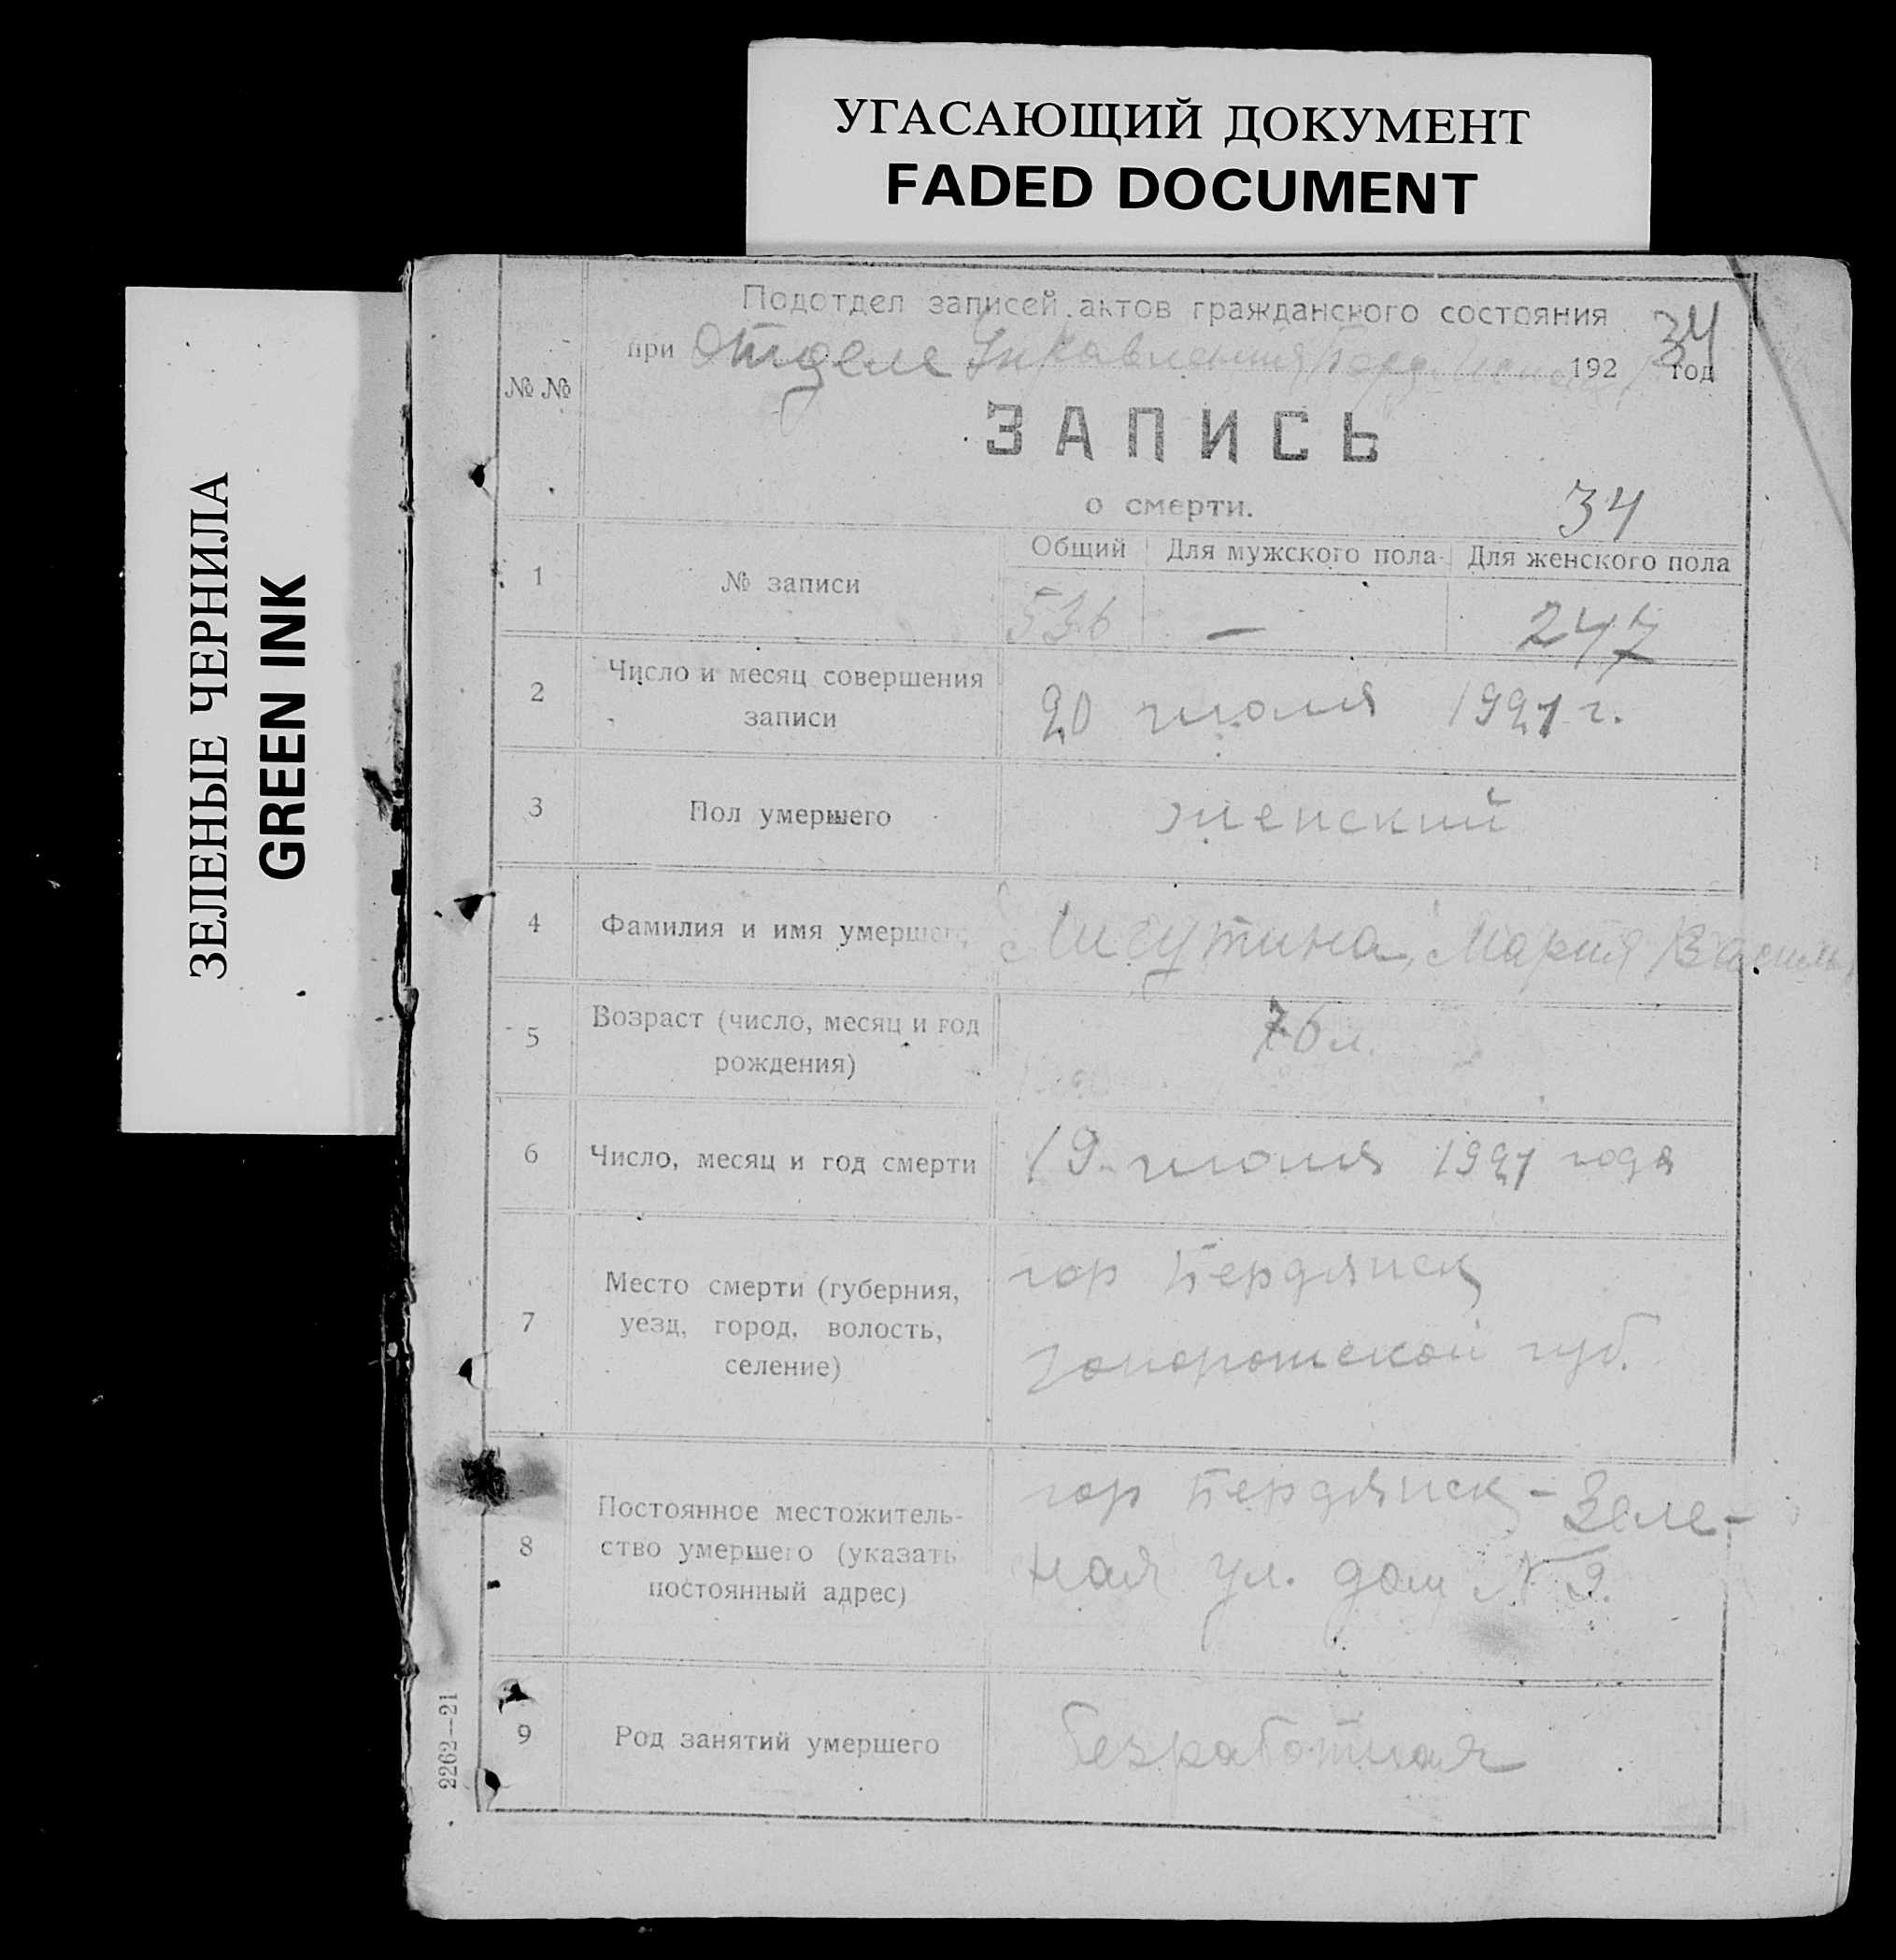 УГАСАЮЩИЙ ДОКУМЕНТ
FADED DOCUMENT
ЗЕЛЕНЫЕ ЧЕРНИЛА
GREEN INK
Подотдел записей актов гражданского состояния
34
при Отделе Управления 192 год
№ №
ЗАПИСЬ
о смерти.
34
Общий Для мужского пола Для женского пола
1 № записи 536 — 247
2 Число и месяц совершения
записи
20 июля 1921 г.
3 Пол умершего женский
4 Фамилия и имя умершего Личутина, Мария Василь
5 Возраст (число, месяц и год
рождения)
76 л.
6 Число, месяц и год смерти 19 июля 1921 года
7 Место смерти (губерния,
уезд, город, волость,
селение)
гор Бердянск
Запорожской губ.
8 Постоянное местожитель-
ство умершего (указать
постоянный адрес)
гор Бердянск - Зеле-
ная ул. дом № 9.
9 Род занятий умершего безработная
2262—21